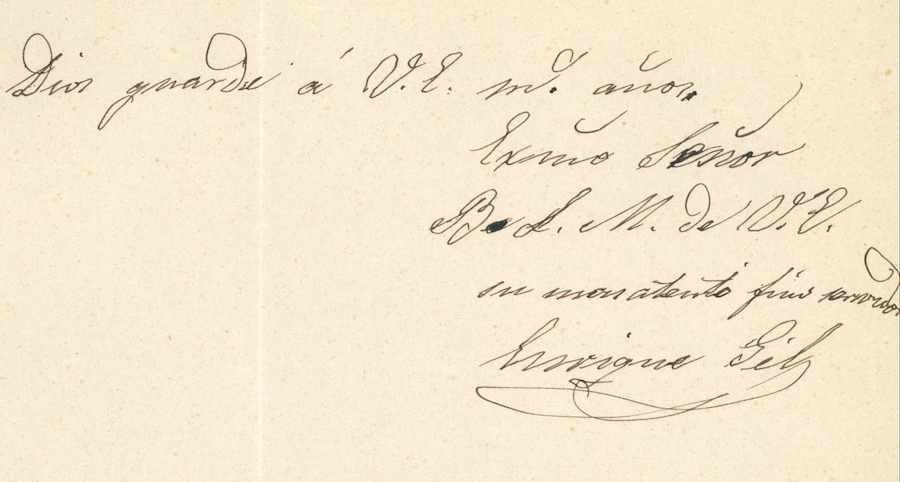 Dios guarde á V.E. ms. años.
Exmo Señor
B. L. M. de V.E.
su mas atento fino servidor
Enrique Gil